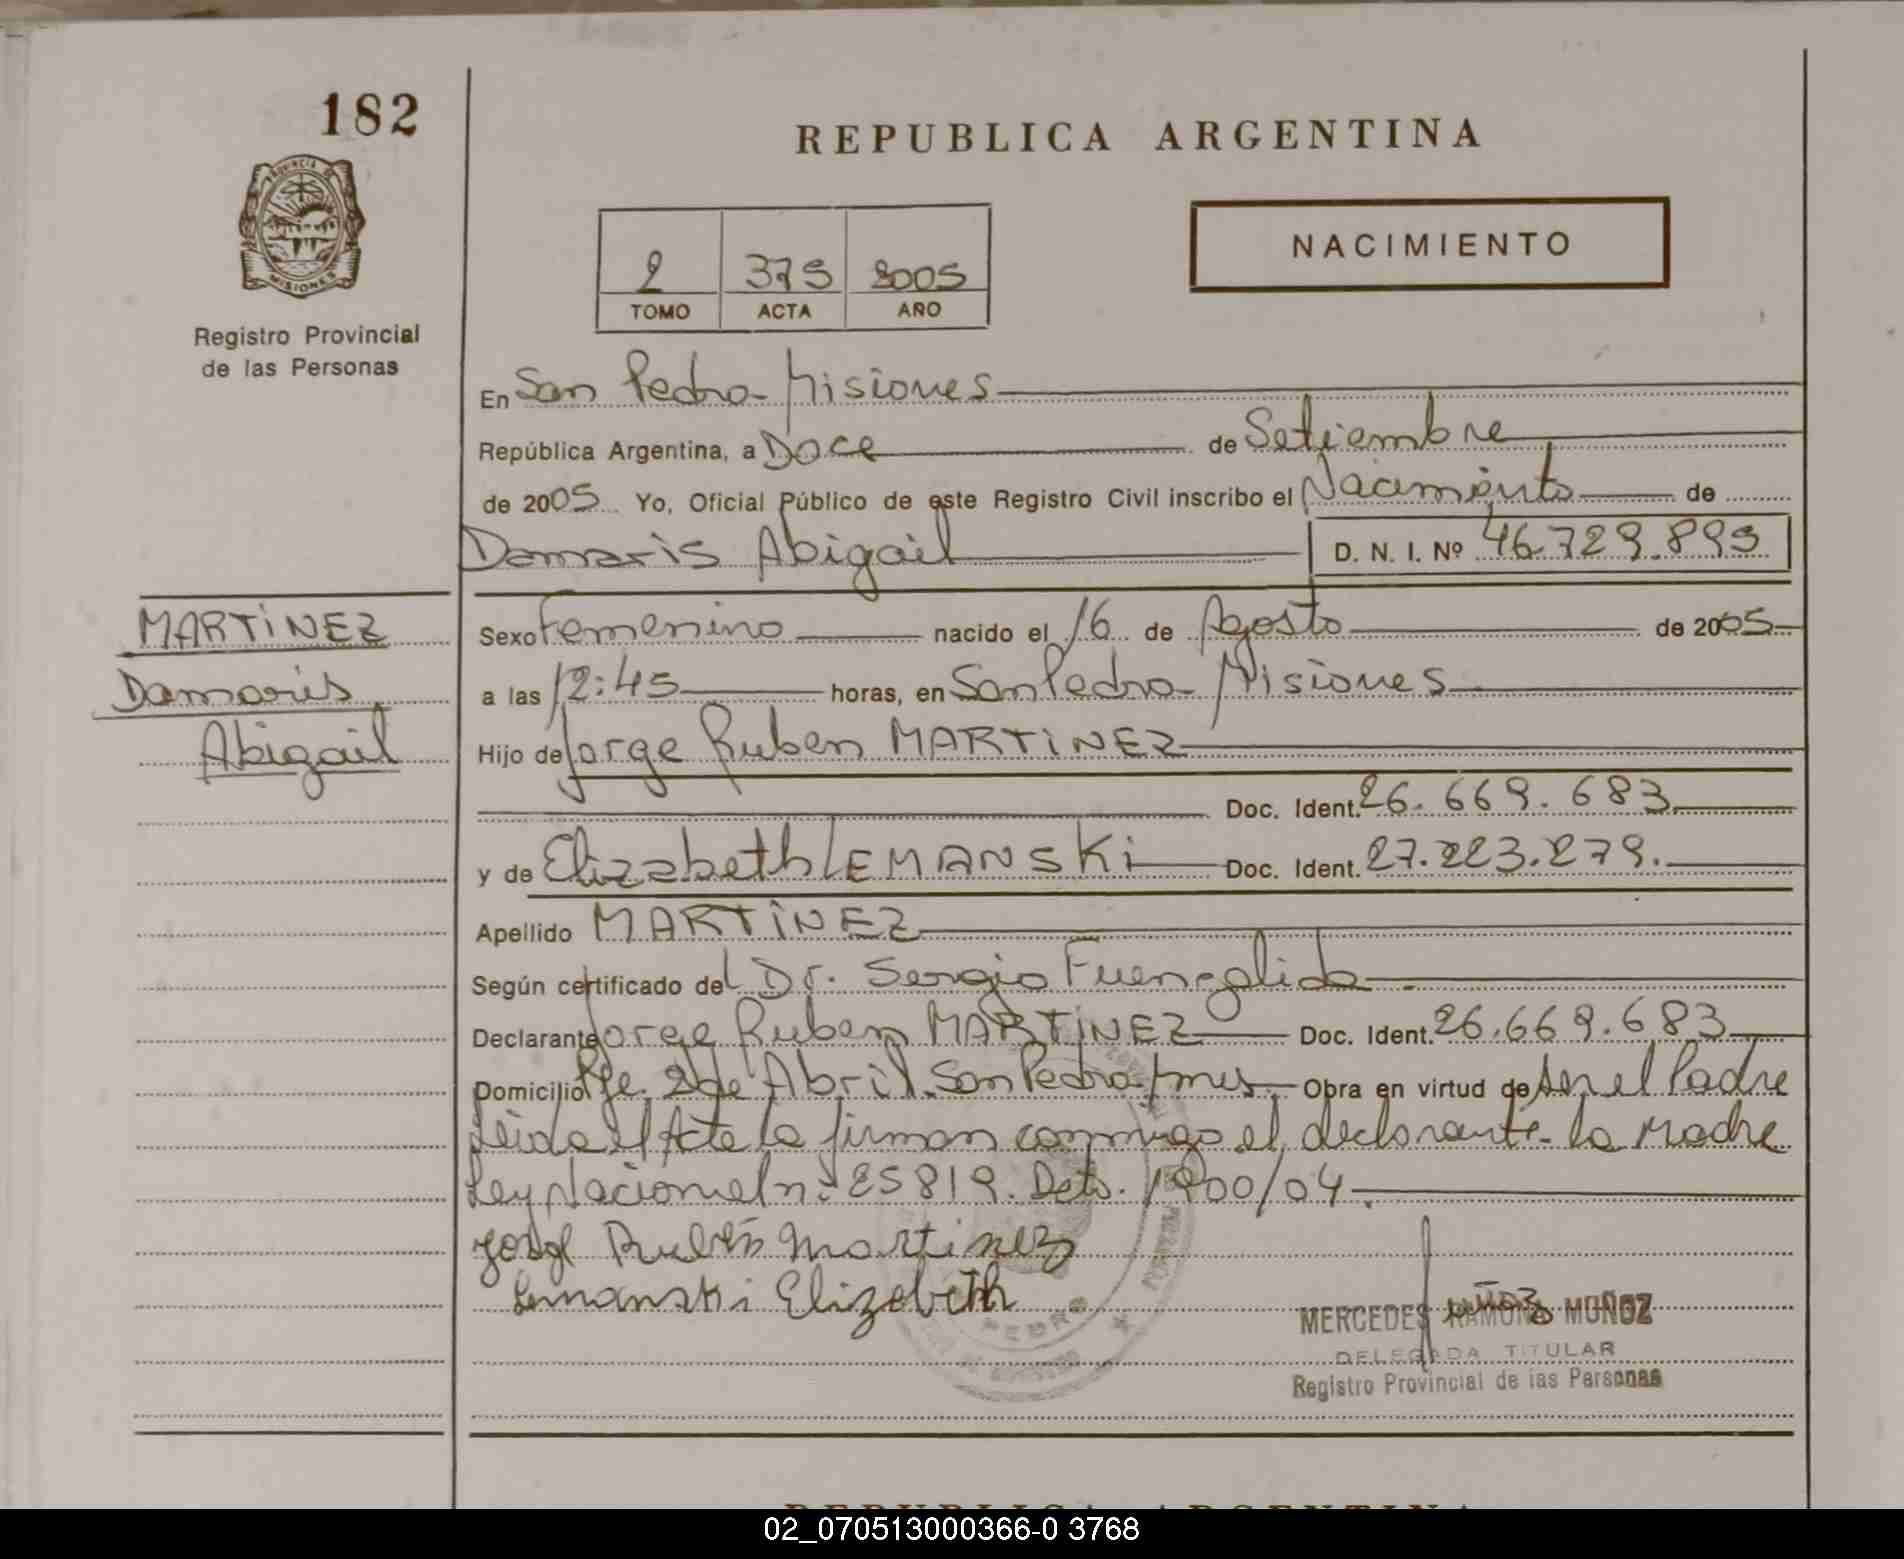 182
REPUBLICA ARGENTINA
PROVINCIA DE
MISIONES
Registro Provincial
de las Personas
2 375 2005
TOMO ACTA AÑO
NACIMIENTO
En San Pedro - Misiones
República Argentina, a Doce de Setiembre
de 2005 Yo, Oficial Público de este Registro Civil inscribo el Nacimiento de
Damaris Abigail D. N. I. Nº 46.729.899
MARTINEZ
Damaris
Abigail
Sexo Femenino nacido el 16 de Agosto de 2005
a las 12:45 horas, en San Pedro - Misiones
Hijo de Jorge Ruben MARTINEZ
Doc. Ident. 26.669.683
y de Elizabeth LEMANSKi Doc. Ident. 27.223.279.
Apellido MARTINEZ
Según certificado del Dr. Sergio Fuenzalida
Declarante Jorge Ruben MARTINEZ Doc. Ident. 26.669.683
Domicilio Pje. 2 de Abril. San Pedro - mns. Obra en virtud de ser el Padre
Leida el Acta la firman conmigo el declarante - la Madre
Ley Nacional nº 25819. Dcto. 1900/04
Jorge Rubén Martinez
Lemanski Elizabeth
PEDRO
MERCEDES RAMONA MUÑOZ
DELEGADA TITULAR
Registro Provincial de las Personas
02_070513000366-0 3768